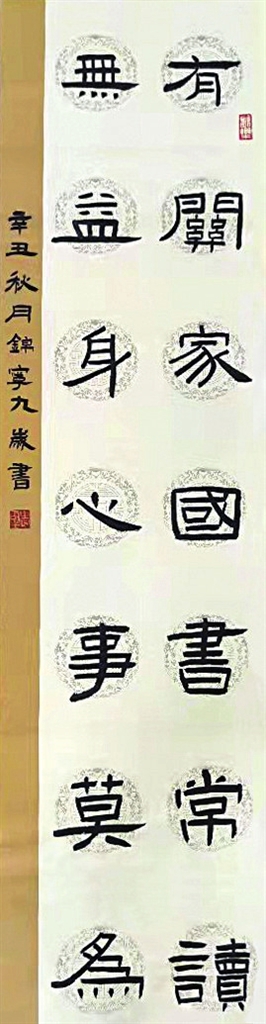 有關家國書常讀
無益身心事莫為
辛丑秋月錦寧九歲書